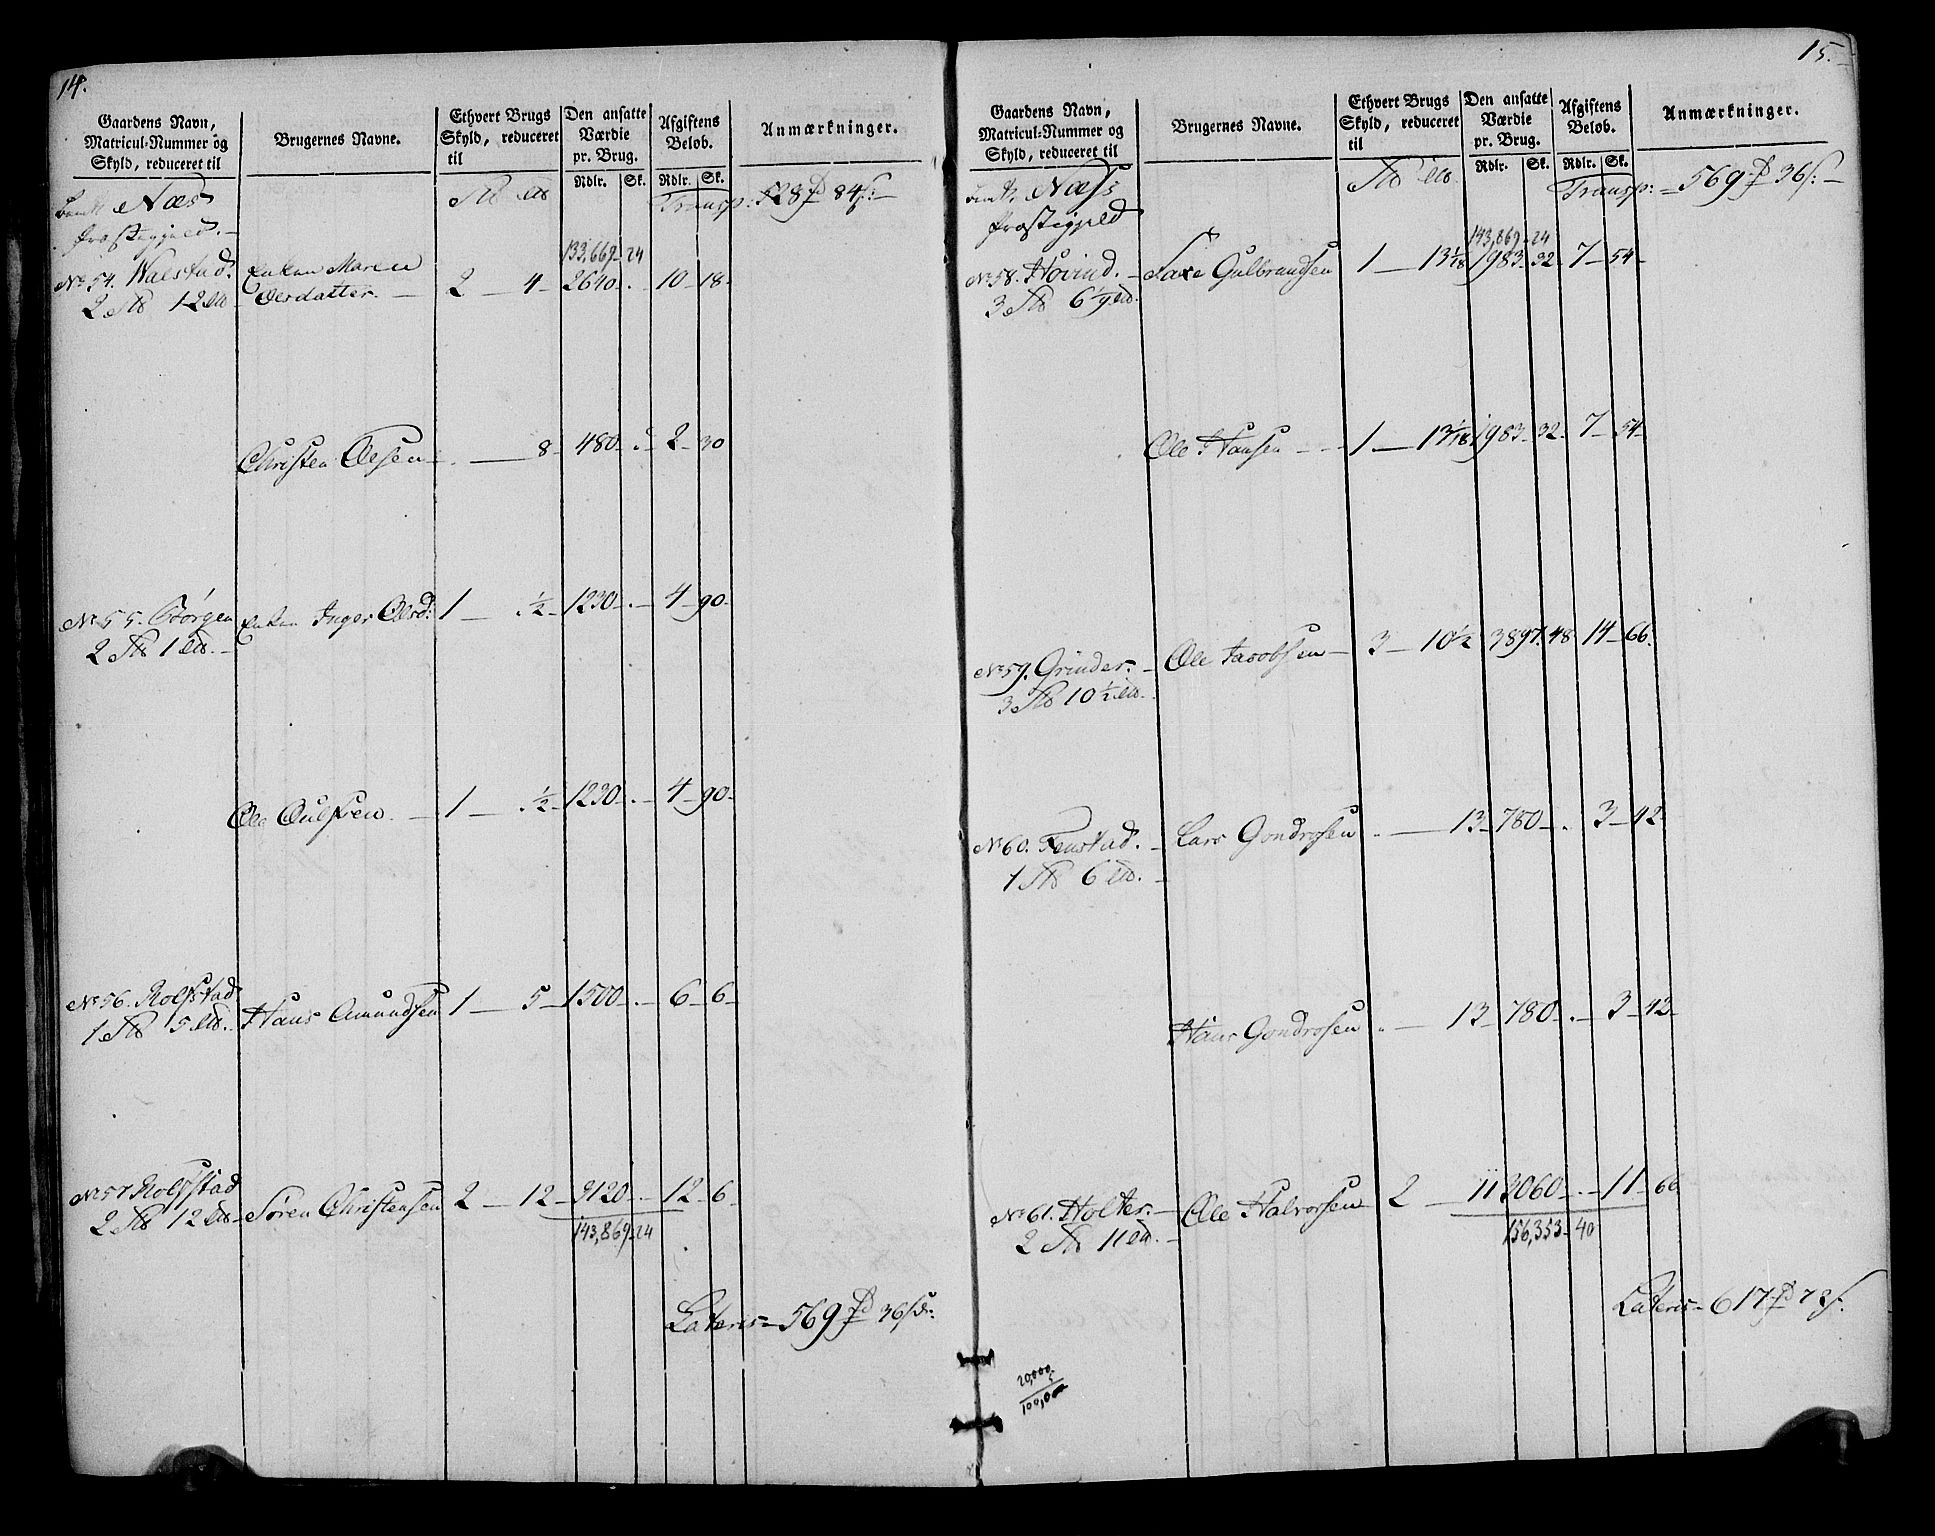 14.
Gaardens Navn, Matricul-Nummer og Skyld, reduceret til
Brugernes Navne.
Ethvert Brugs Skyld, reduceret til
Den ansatte Værdie pr. Brug.
Afgiftens Beløb.
Anmærkninger.
Rdlr. Sk. Rdlr. Sk.
Næs
Præstegjeld.
Transp: 528 84
133,669 - 24
No 54. Walstad. Enken Maren
Olesdatter. 2 - 4 - 2640 - . - 10 - 18 -
Christen Olsen - . - 8 - 480 - . - 2 - 30
No 55. Børgen Enken Inger Olsd: 1 - . ½ - 1230 - . - 4 - 90 -
Ole Oulsen - 1 - . ½ - 1230 - . - 4 - 90 -
No 56. Rolfstad Hans Amundsen 1 - 5 - 1500 - . - 6 - 6 -
No 57 Rolfstad Sören Christensen 2 - 12 - 3120 - . - 12 - 6 -
143,869 - 24
Lateris = 569 36
15.
Gaardens Navn, Matricul-Nummer og Skyld, reduceret til
Brugernes Navne.
Ethvert Brugs Skyld, reduceret til
Den ansatte Værdie pr. Brug.
Afgiftens Beløb.
Anmærkninger.
Rdlr. Sk. Rdlr. Sk.
Næss
Præstegjeld
Transp: 569 36
143,869 - 24
No 58. Hovind. - Saxe Gulbrandsen 1 - 13 1/18 1983 - 32 - 7 - 54 -
Ole Hansen - 1 - 13 1/18 1983 - 32 - 7 - 54 -
No 59. Grinder. - Ole Jacobsen - 3 - 10 ½ 3897. 48 14 - 66.
No 60. Fenstad. - Lars Gondrosen . - 13 - 780 - . 3 - 42
Hans Gondrosen . - 13 - 780 - . - 3 - 42 -
No 61. Holter. - Ole Halvorsen 2 - 11 3060 - . - 11 - 66
156,353 - 40
Lateris = 617 72
20,000
5
100,000